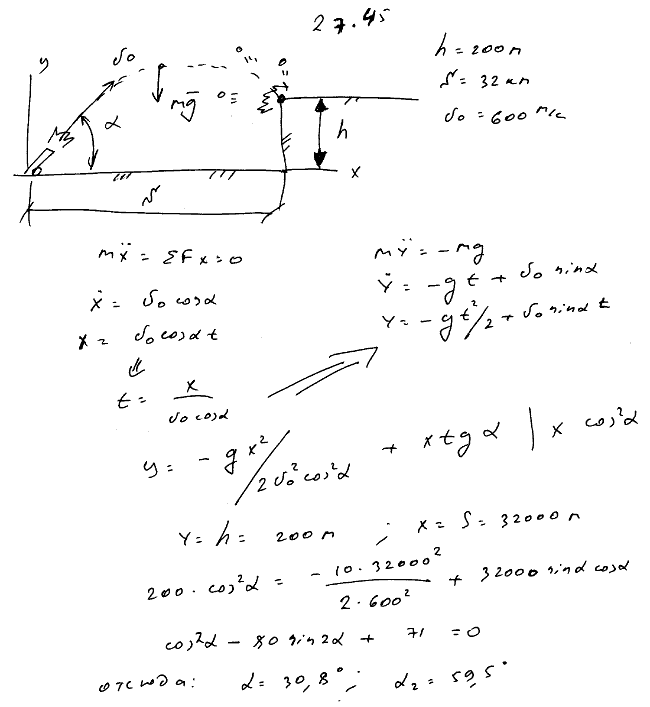 27.45
h = 200 м
S = 32 км
v₀ = 600 м/с
y
v₀
mg̅
α
h
x
S
mẍ = ΣFx = 0
ẋ = v₀ cosα
x = v₀ cosα t
t = x / v₀ cosα
mÿ = -mg
ẏ = -gt + v₀ sinα
y = -gt²/2 + v₀ sinα t
y = -gx² / 2v₀² cos²α + x tgα | x cos²α
y = h = 200 м ; x = S = 32000 м
200 · cos²α = -10·32000² / 2·600² + 32000 sinα cosα
cos²α - 80 sin2α + 71 = 0
отсюда: α = 30,8° ; α₂ = 59,5°